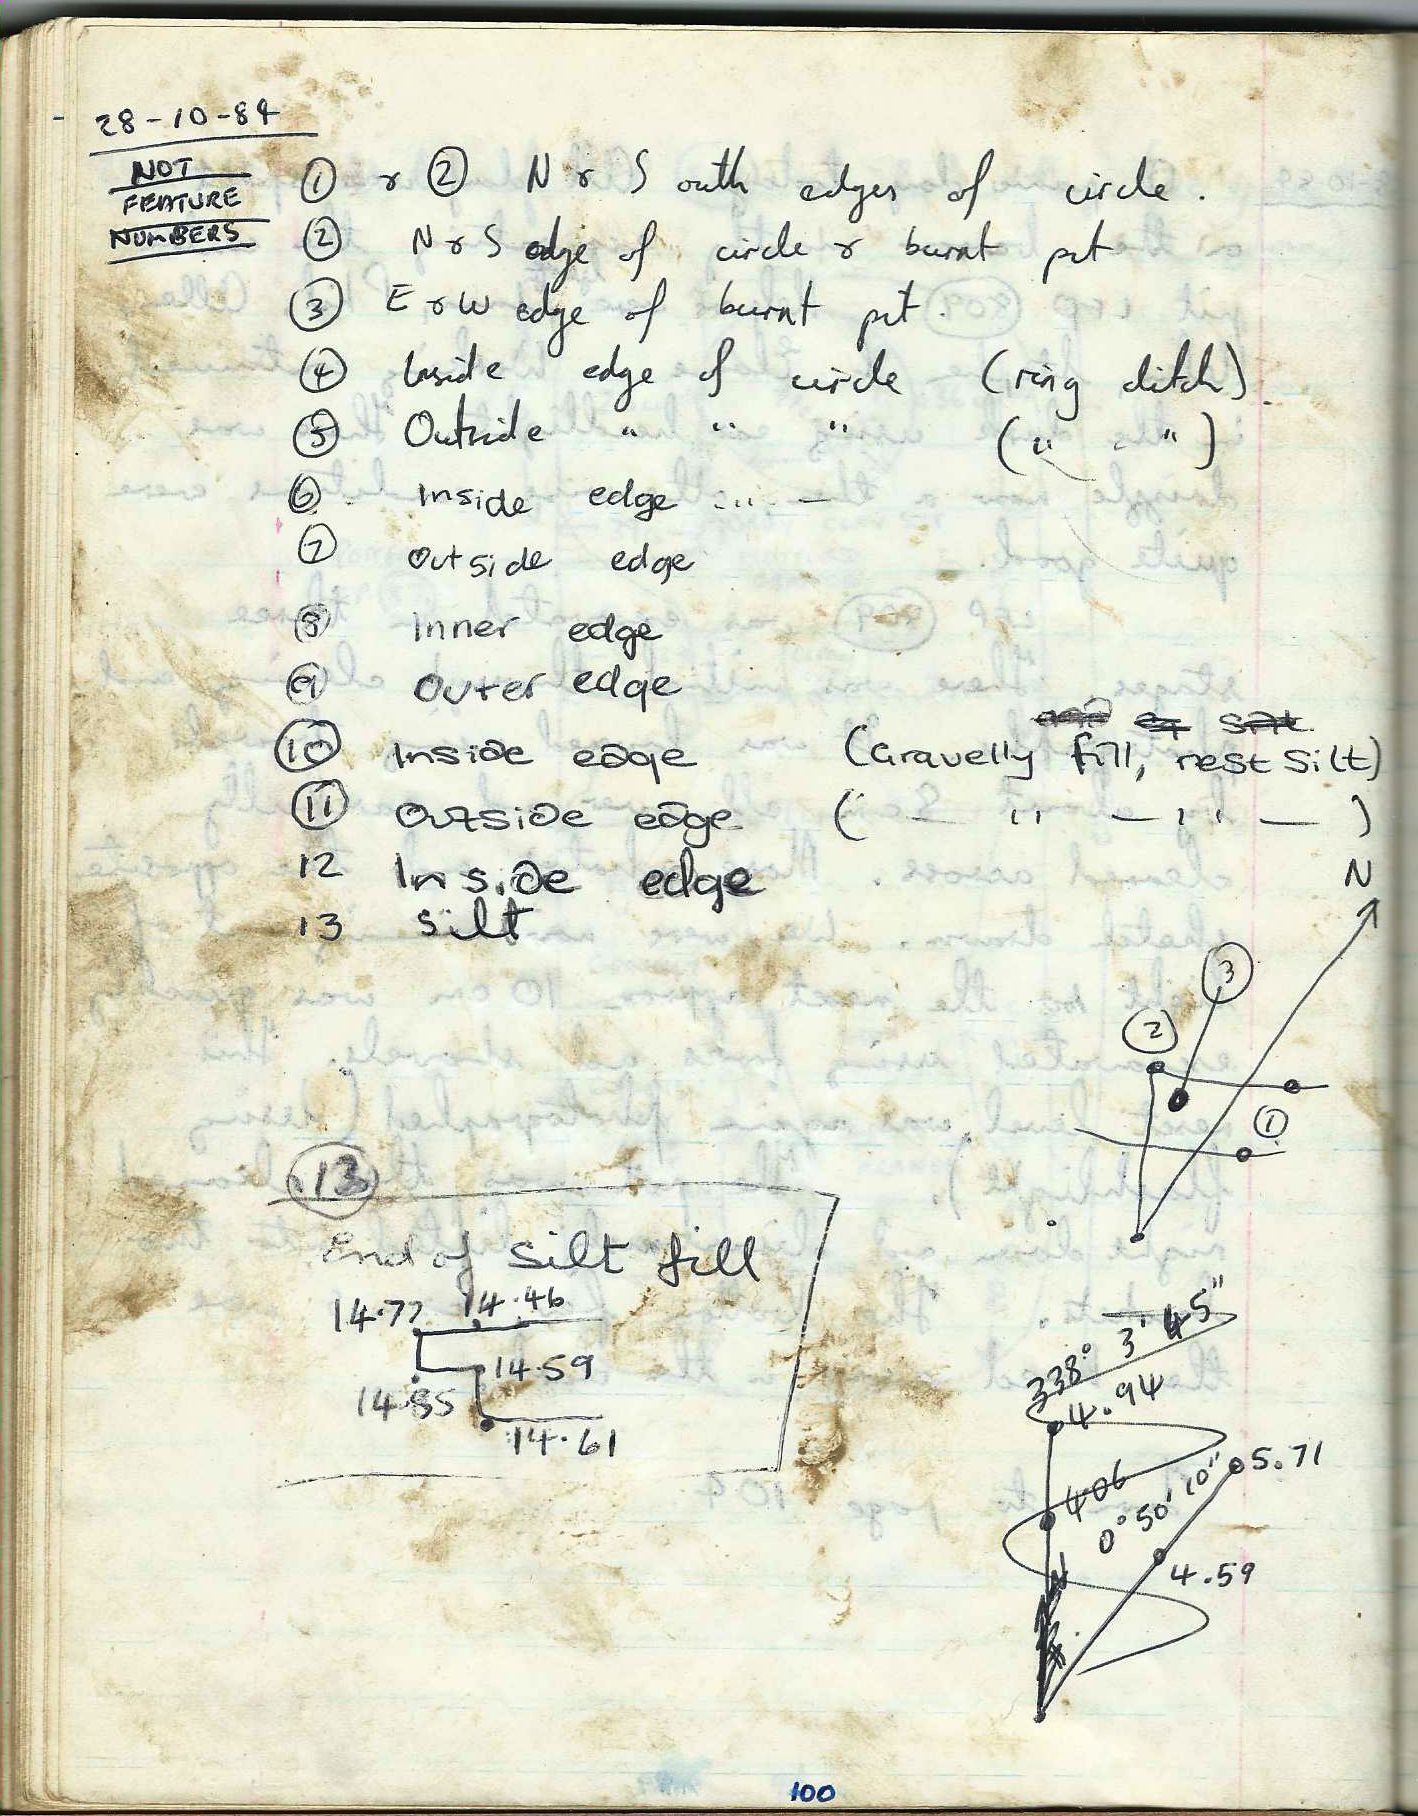 28-10-84
NOT
FEATURE
NUMBERS
① & ② N & South edges of circle.
② N & S edge of circle & burnt pit
③ E & W edge of burnt pit.
④ Inside edge of circle (ring ditch).
⑤ Outside " " " (" ")
⑥ Inside edge " —
⑦ Outside edge
⑧ Inner edge
⑨ Outer edge
⑩ Inside edge (Gravelly fill, nest silt)
⑪ Outside edge (" — " — " — )
12 Inside edge
13 Silt
N
③
②
①
13
End of silt fill
14.77 14.46
14.59
14.85
14.61
338° 3' 45"
4.94
406
0° 50' 10"
5.71
4.59
100